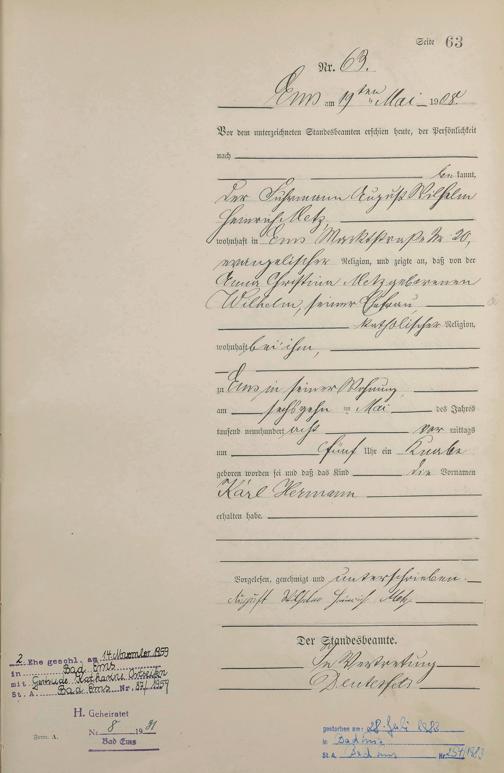 Seite 63
Nr. 63.
Ems am 19ten Mai 1908.
Vor dem unterzeichneten Standesbeamten erschien heute, der Persönlichkeit
nach
be kannt,
der Fuhrmann August Wilhelm
Heinrich Metz,
wohnhaft in Ems Marktstraße № 20,
evangelischer Religion, und zeigte an, daß von der
Anna Christina Metz geborenen
Wilhelm, seiner Ehefrau
katholischer Religion,
wohnhaft bei ihm,
zu Ems in seiner Wohnung
am sechszehn ten Mai des Jahres
tausend neunhundert acht vor mittags
um fünf Uhr ein Knabe
geboren worden sei und daß das Kind die Vornamen
Karl Hermann
erhalten habe.
Vorgelesen, genehmigt und unterschrieben.
August Wilhelm Heinrich Metz
Der Standesbeamte.
In Vertretung
2. Ehe geschl. am 14. November 1959
in Bad Ems
mit Gertrude Katharine
St. A. Bad Ems Nr. 1959
H. Geheiratet
Nr. 8 1931
Bad Ems
Form. A.
gestorben am: 28. Juli
in Bad Ems
St. A. Bad Ems Nr.